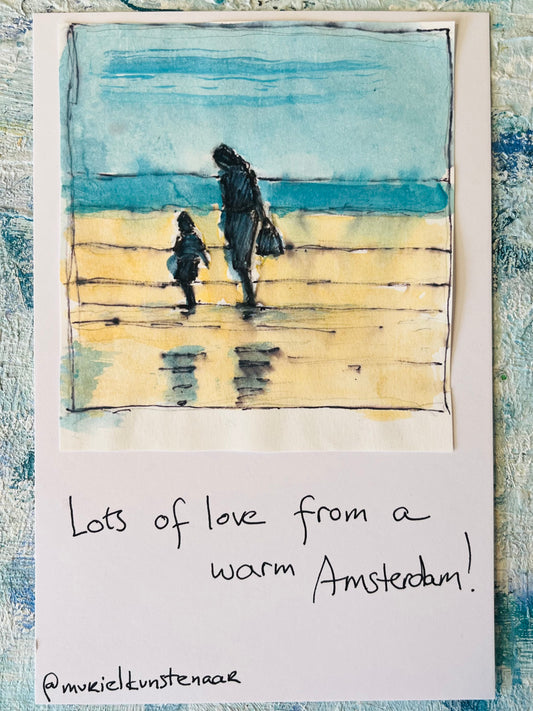 Lots of love from a
warm Amsterdam!
@murielkunstenaar